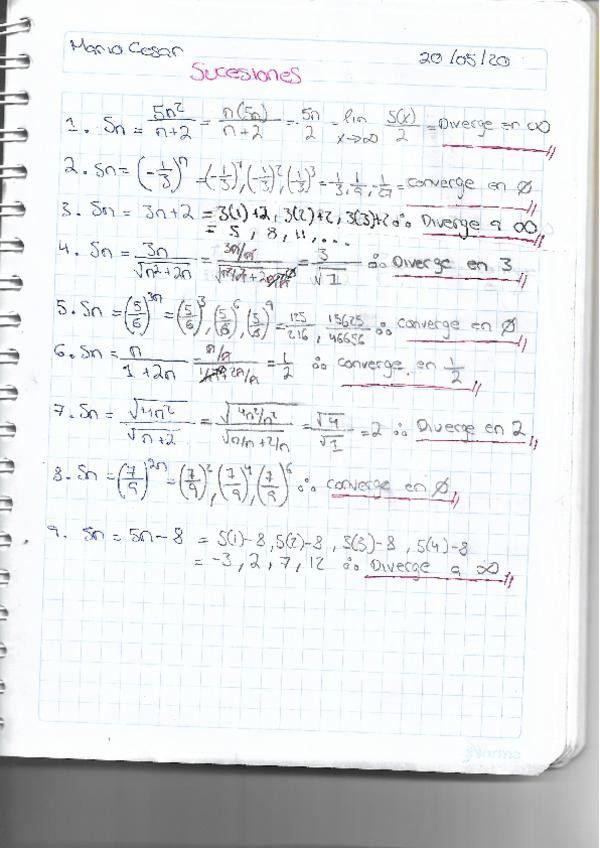 Mario Cesar 20/05/20
Sucesiones
1. Sn = 5n²/n+2 = n(5n)/n+2 = 5n/2 = lim x→∞ 5(x)/2 = Diverge en ∞
2. Sn = (-1/3)ⁿ = (-1/3)¹, (-1/3)², (1/3)³ = -1/3, 1/9, -1/27 = converge en ∅
3. Sn = 3n+2 = 3(1)+2, 3(2)+2, 3(3)+2 ∴ Diverge a ∞
= 5, 8, 11, ...
4. Sn = 3n/√n²+2n = 3n/n = 3/√1 ∴ Diverge en 3
5. Sn = (5/6)³ⁿ = (5/6)³, (5/6)⁶, (5/6)⁹ = 125/216, 15625/46656 ∴ converge en ∅
6. Sn = n/1+2n = n/n = 1/2 ∴ converge en 1/2
7. Sn = √4n²/√n+2 = √4n²/n²/√n/n+2/n = √4/√1 = 2 ∴ Diverge en 2
8. Sn = (7/9)²ⁿ = (7/9)², (7/9)⁴, (7/9)⁶ ∴ converge en ∅
9. Sn = 5n-8 = 5(1)-8, 5(2)-8, 5(3)-8, 5(4)-8
= -3, 2, 7, 12 ∴ Diverge a ∞
Norma